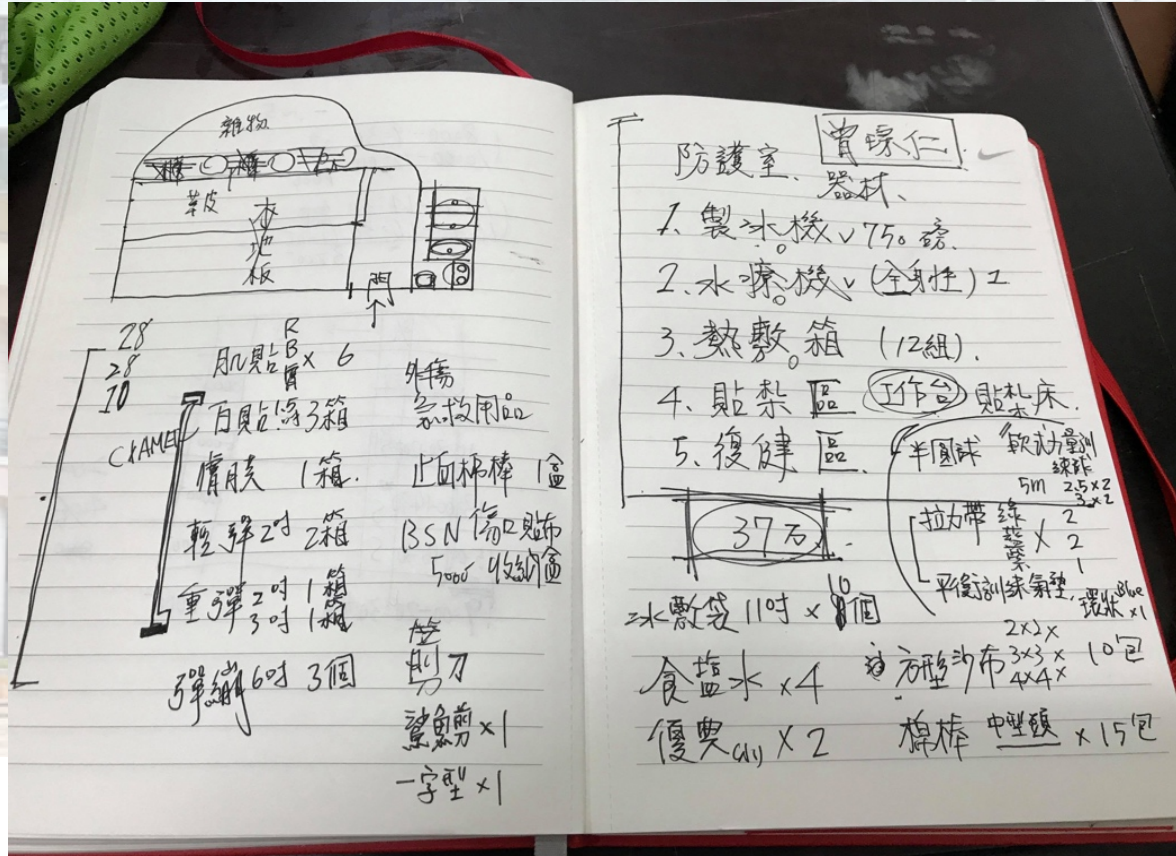 雜物
櫃 櫃
華皮
木地板
門
28
28
10
肌貼 R B 膚 × 6
CRAMER
白貼 1.5吋 3箱
膚膜 1箱.
輕彈2吋 2箱
重彈2吋 1箱
3吋 1箱
彈繃6吋 3個
外傷
急救用品
止血棉棒 1盒
BSN 傷口貼布
5000 收納盒
剪刀
鯊魚剪 ×1
一字型 ×1
曾琮仁
防護室、器材、
1. 製冰機 ✓ 750磅.
2. 水療機 ✓ (全身性) 1
3. 熱敷箱 (12組).
4. 貼紮區 工作台 貼紮床.
5. 復健區
半圓球 軟式力量訓練球
5m 2.5×2
3×2
拉力帶 綠 × 2
藍 2
紫 1
平衡訓練氣墊, 環狀 Blue ×1
37万
冰敷袋 11吋 × 10個
食盐水 ×4
方型沙布 2×2×
3×3×
4×4×
10包
優典 × 2
棉棒 中型頭 × 15包